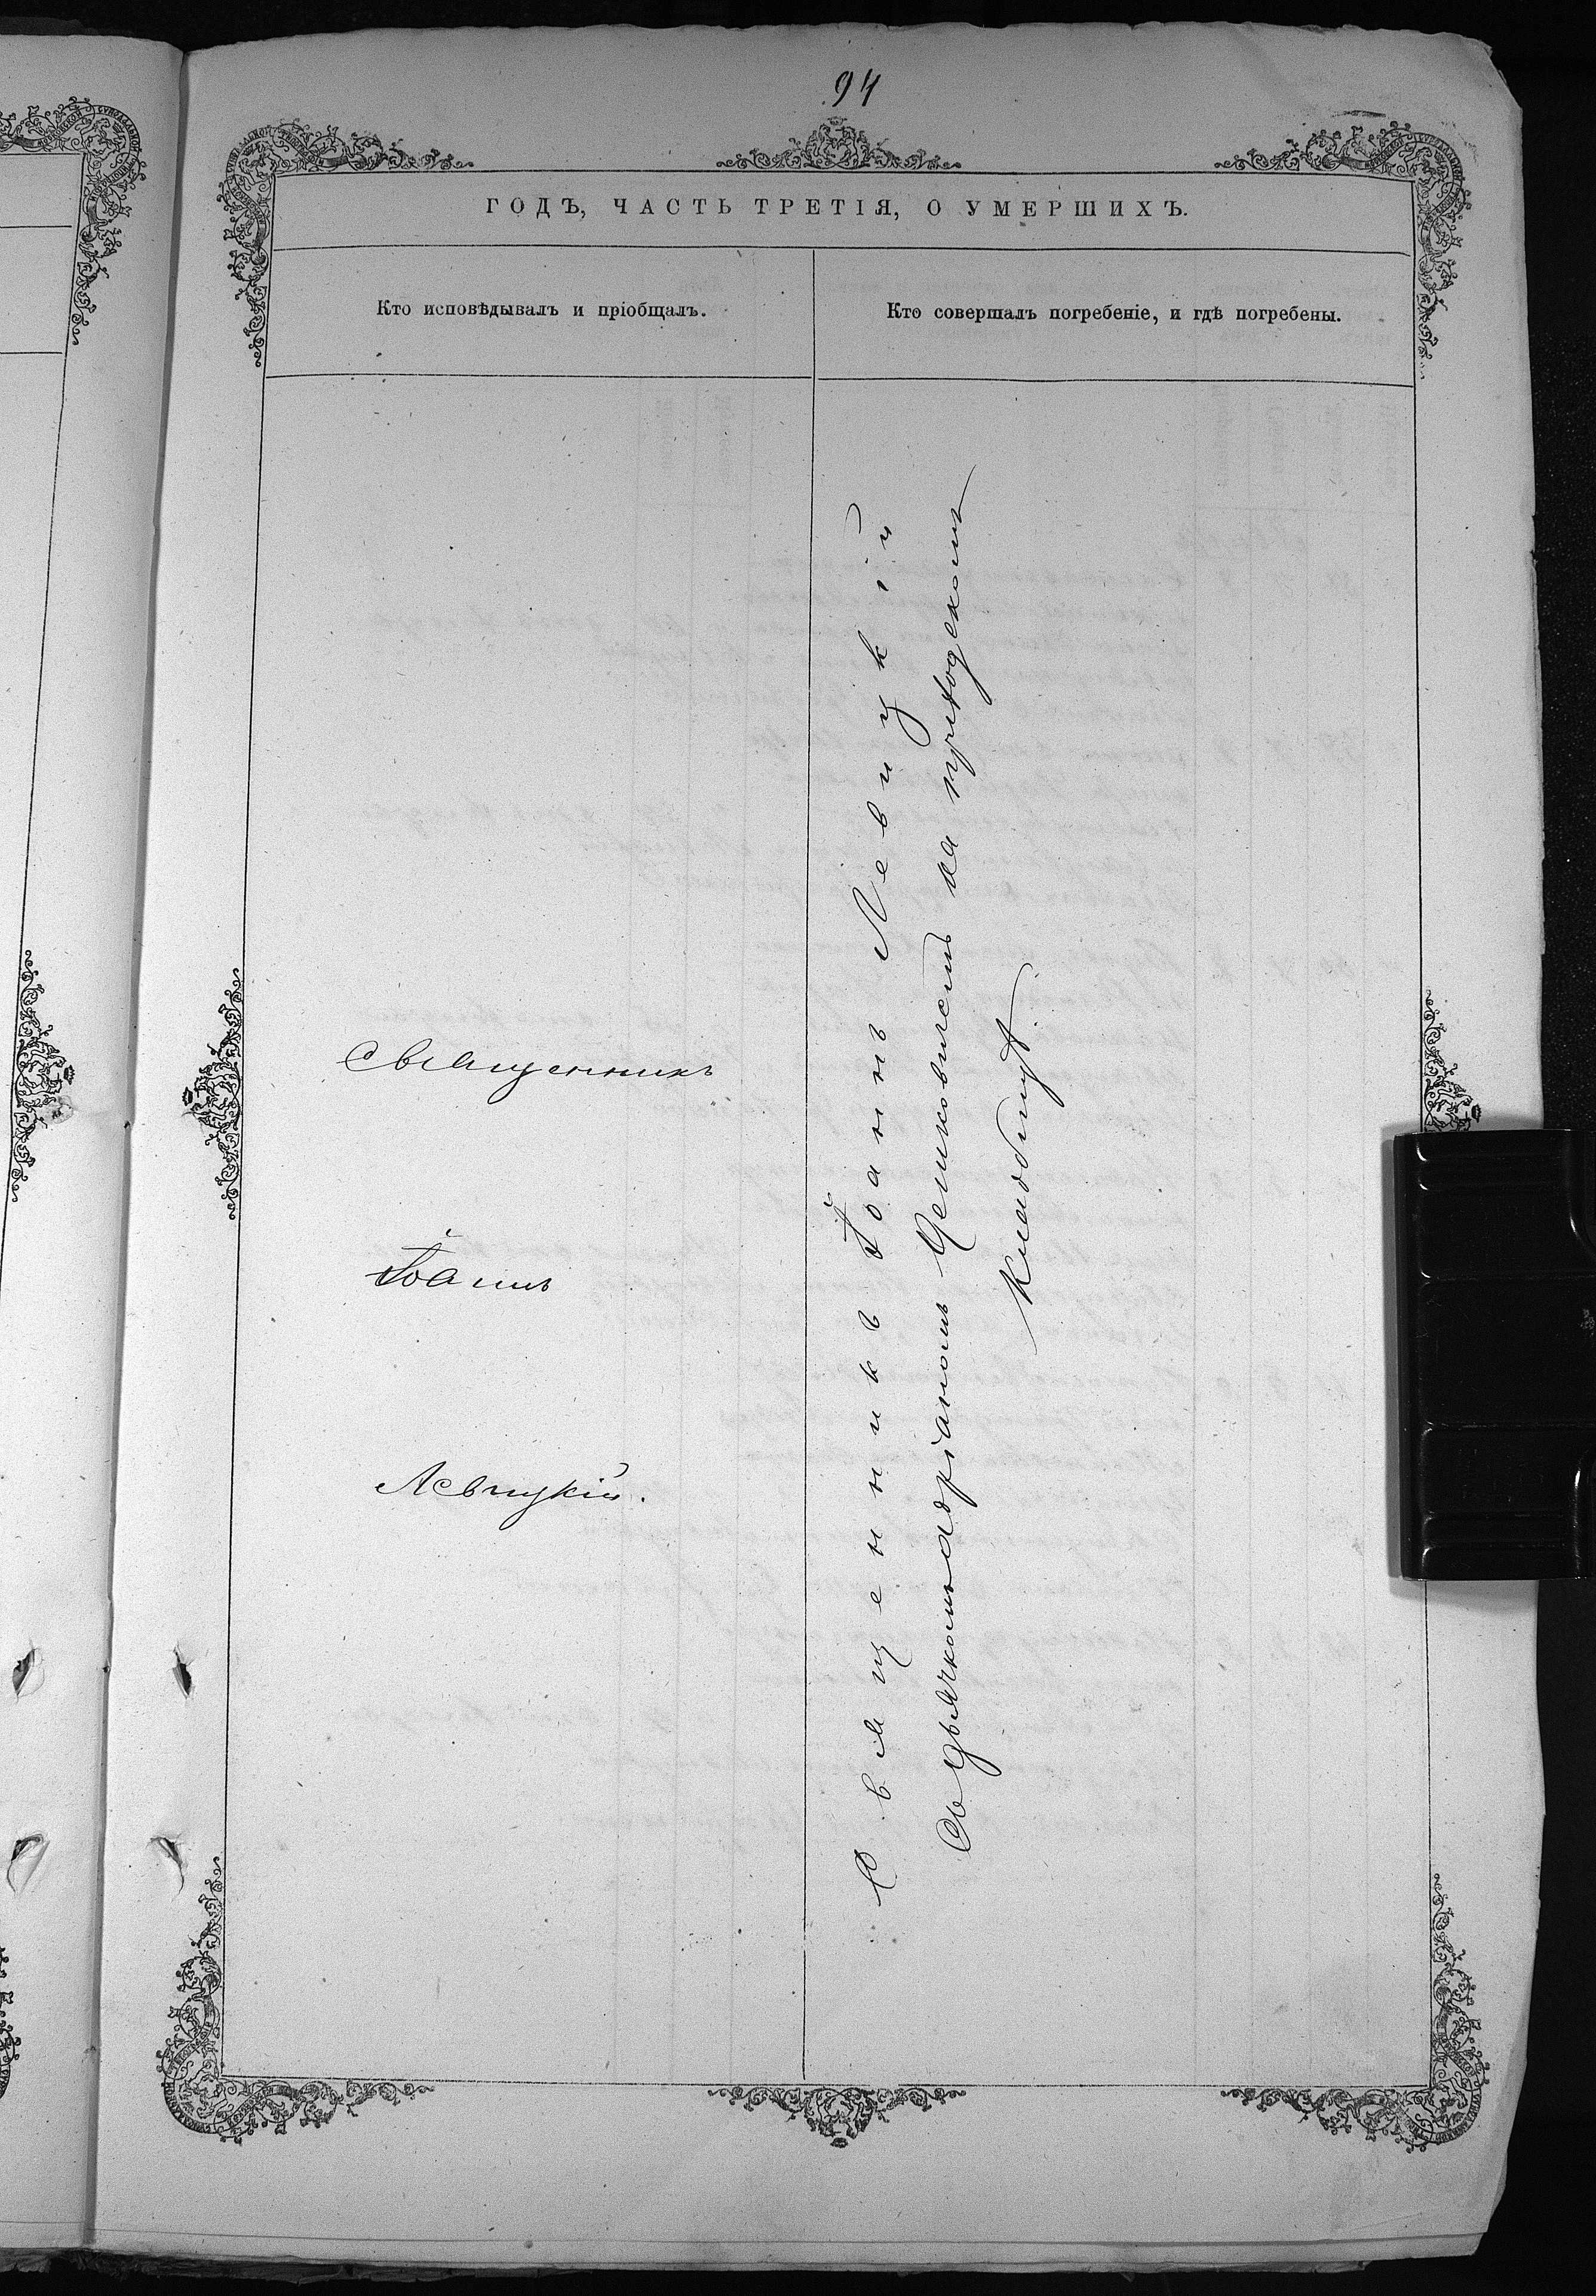 94
ГОДЪ, ЧАСТЬ ТРЕТІЯ, О УМЕРШИХЪ.
Кто исповѣдывалъ и пріобщалъ.
Кто совершалъ погребеніе, и гдѣ погребены.
Священникъ
Іоаннъ
Левицкій.
Священникъ Іоаннъ Левицкій
Съ дьячкомъ Адріаномъ на приходскомъ
кладбищѣ.